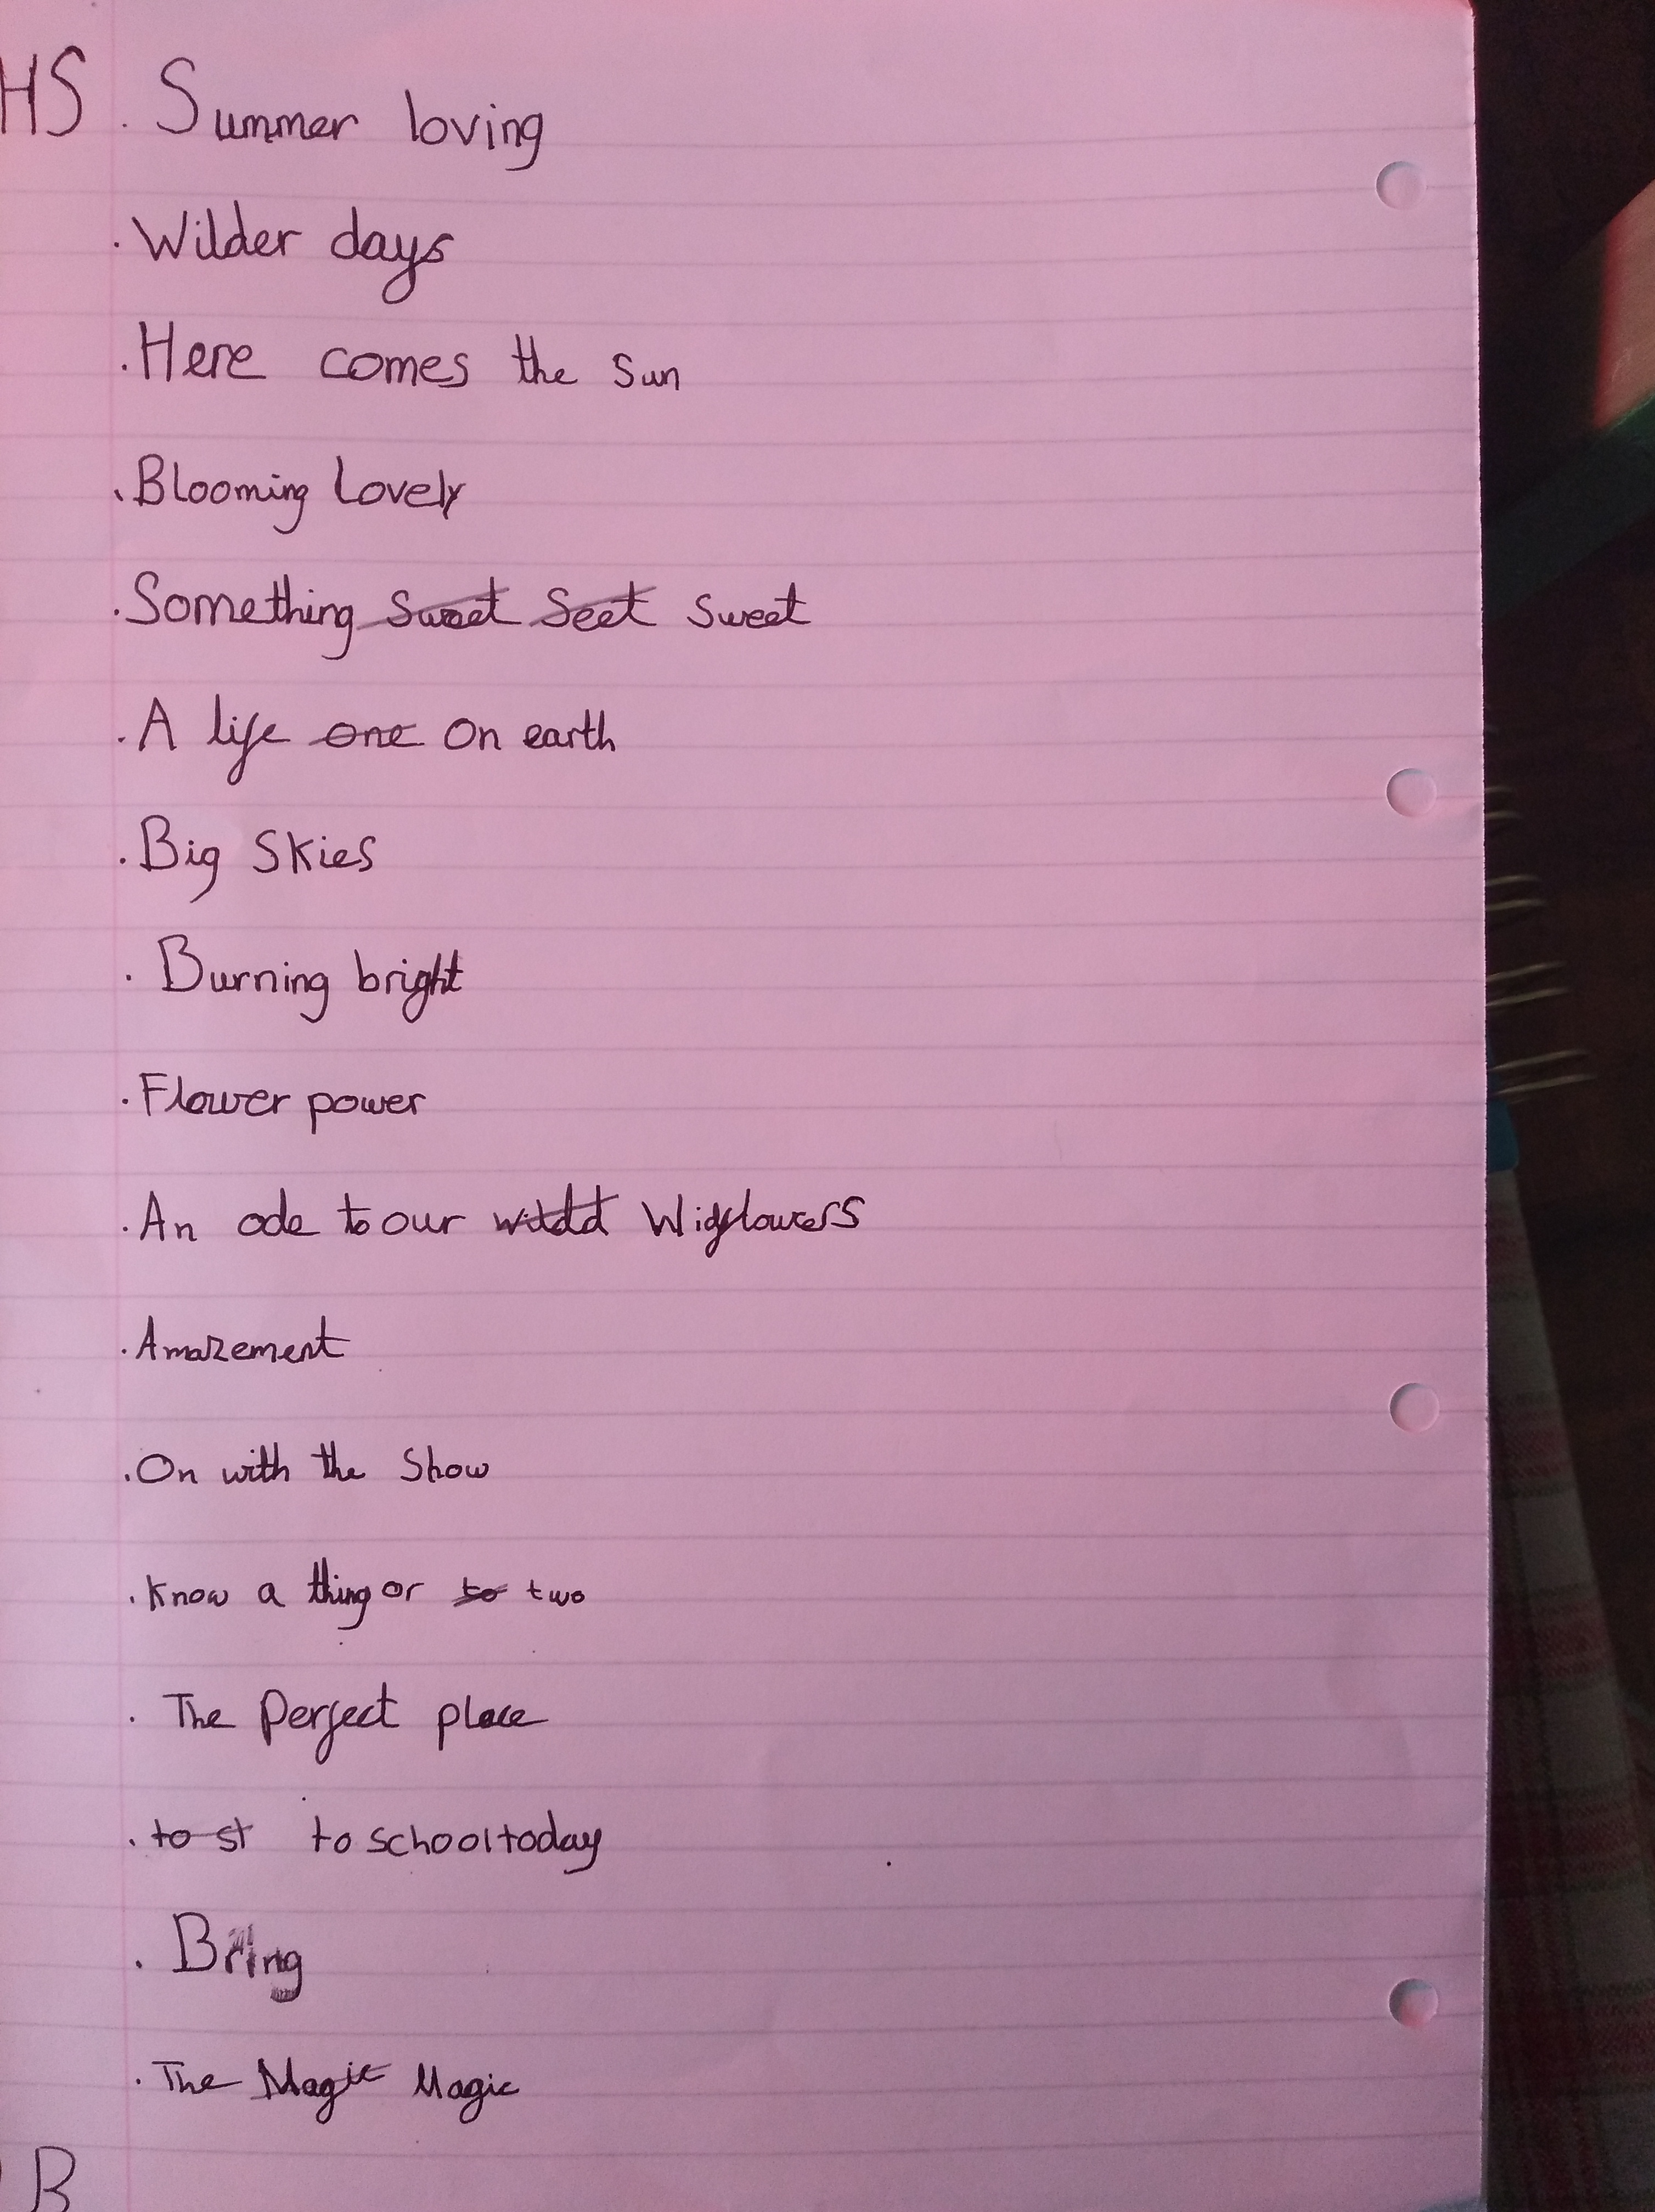 HS . Summer loving
. Wilder days
. Here comes the Sun
. Blooming Lovely
. Something Sweet Seet Sweet
. A life one On earth
. Big Skies
. Burning bright
. Flower power
. An ode to our Widflowers
. Amazement
. On with the Show
. Know a thing or to two
. The Perfect place
. to st to school today
. Bring
. The Magic Magic
B